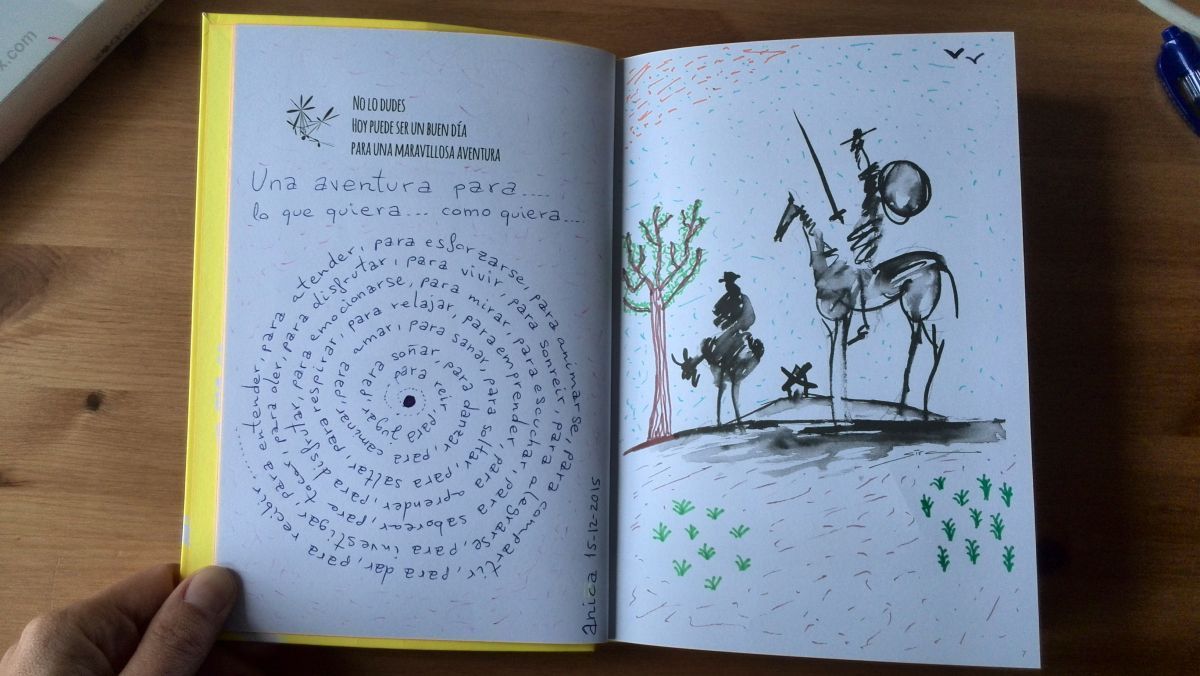 x.com
NO LO DUDES
HOY PUEDE SER UN BUEN DÍA
PARA UNA MARAVILLOSA AVENTURA
Una aventura para....
lo que quiera... como quiera....
para reir, para jugar, para soñar, para danzar, para caminar, para amar, para sanar, para soltar, para saltar, para respirar, para relajar, para emprender, para aprender, para disfrutar, para emocionarse, para mirar, para escuchar, para saborear, para tocar, para oler, para disfrutar, para vivir, para sonreir, para alegrarse, para investigar, para entender, para atender, para esforzarse, para animarse, para compartir, para dar, para recibir....
anica 15-12-2015
7